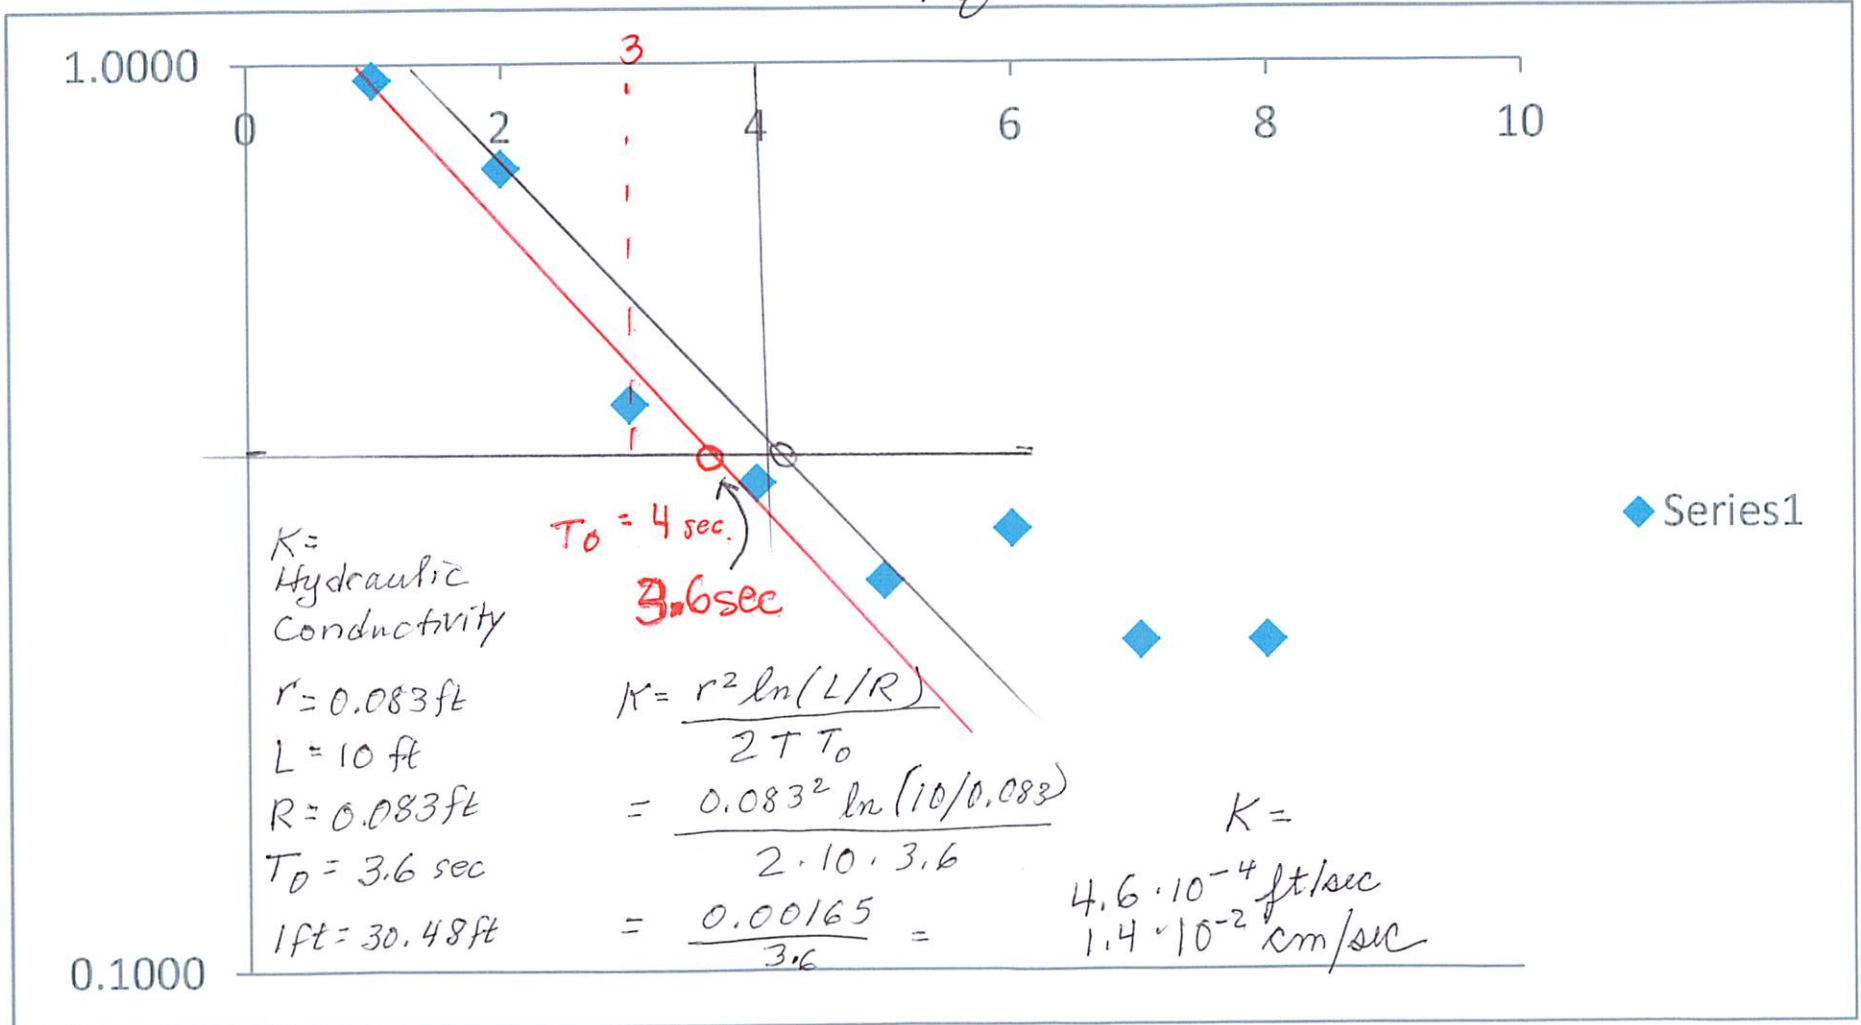 3
1.0000
0
2
4
6
8
10
Series1
T0 = 4 sec.
3.6sec
K=
Hydraulic
Conductivity
r = 0.083ft
L = 10 ft
R = 0.083ft
T0 = 3.6 sec
1ft = 30.48ft
K = r² ln(L/R)
2 T T0
= 0.083² ln(10/0.083)
2 · 10 · 3.6
= 0.00165 =
3.6
K =
4.6 · 10⁻⁴ ft/sec
1.4 · 10⁻² cm/sec
0.1000